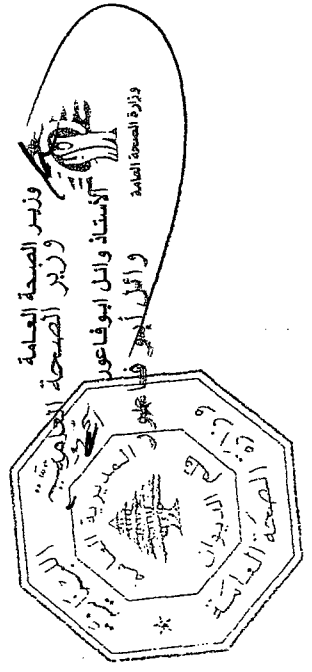 وزير الصحة العامة
وزير الصحة العامة
الأستاذ وائل ابوفاعور
وائل أبو فاعور
وزارة الصحة العامة
الجمهورية اللبنانية
وزارة الصحة العامة
المديرية العامة
الديوان